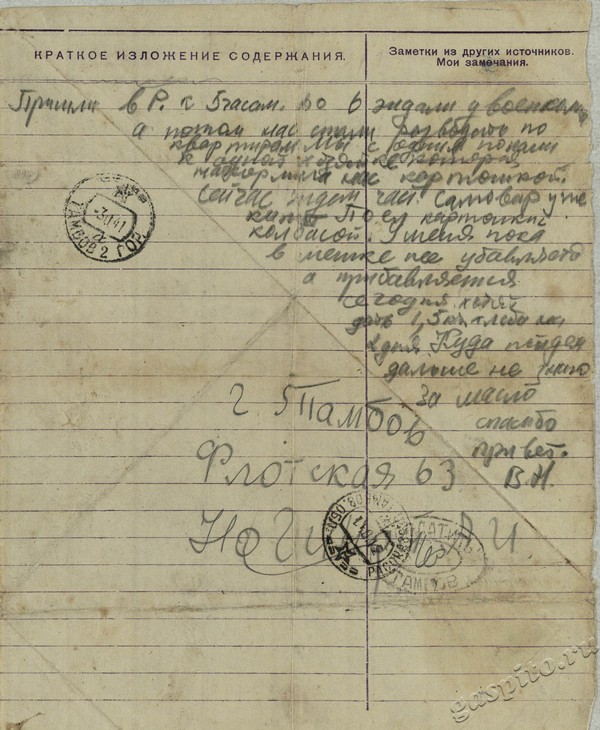 КРАТКОЕ ИЗЛОЖЕНИЕ СОДЕРЖАНИЯ.
Заметки из других источников.
Мои замечания.
Пришли в Р. к 5 часам. До 6 ждали у военкома
а потом нас стали разводить по
квартирам Мы с попали
к одной хозяйке которая
накормила нас картошкой.
Сейчас ждем чай. Самовар уже
кипит Поел картошки с
колбасой. У меня пока
в мешке не убавляется
а прибавляется
Сегодня хотят
дать 1,5 кг хлеба на
2 дня. Куда пойдем
дальше не знаю
За масло
спасибо
привет.
В.Н.
г. Тамбов
Флотская 63
И.
ТАМБОВ 2 ГОР.
ТАМБОВ
gaspito.ru